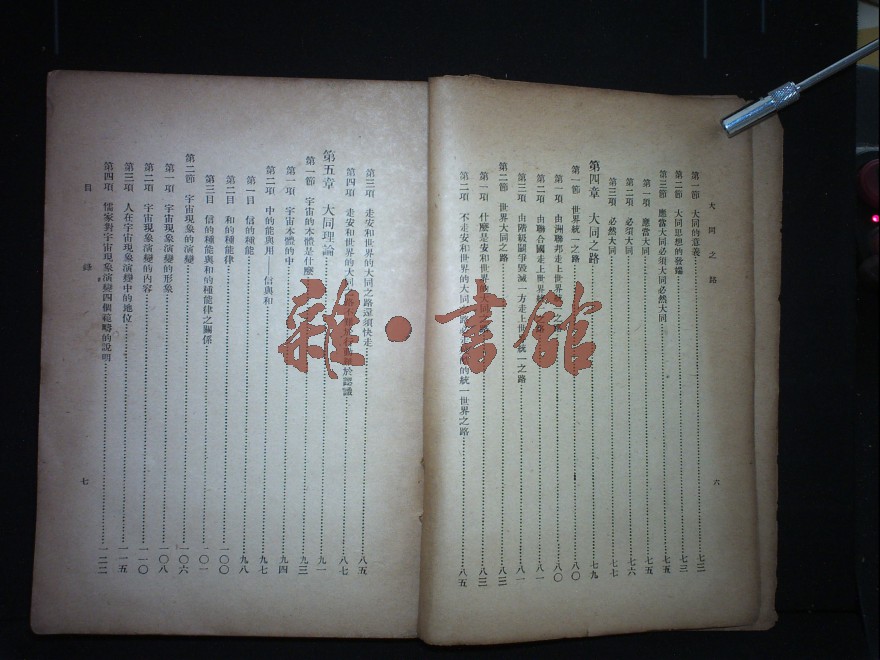 大同之路
第一節　大同的意義……七三
第二節　大同思想的發端……七三
第三節　應當大同必須大同必然大同……七五
第一項　應當大同……七五
第二項　必須大同……七六
第三項　必然大同……七七
第四章　大同之路……七九
第一節　世界統一之路……八〇
第一項　由洲聯邦走上世界……路……八〇
第二項　由聯合國走上世界統……路……八一
第三項　由階級鬭爭毀滅一方走上世……統一之路……八一
第二節　世界大同之路……八三
第一項　什麼是安和世界的大同之路……八三
第二項　不走安和世界的大同……路……的統一世界之路……八五
六
第三項　走安和世界的大同之路還須快走……八五
第四項　走安和世界的大同……於認識……八七
第五章　大同理論……九一
第一節　宇宙的本體是什麼……九三
第一項　宇宙本體的中……九四
第二項　中的能與用——信與和……九七
第一目　信的種能……九八
第二目　和的種能律……一〇〇
第三目　信的種能與和的種能律之關係……一〇一
第二節　宇宙現象的演變……一〇六
第一項　宇宙現象演變的形象……一〇八
第二項　宇宙現象演變的內容……一一〇
第三項　人在宇宙現象演變中的地位……一一五
第四項　儒家對宇宙現象演變四個範疇的說明……一二二
目錄
七
雜·書館